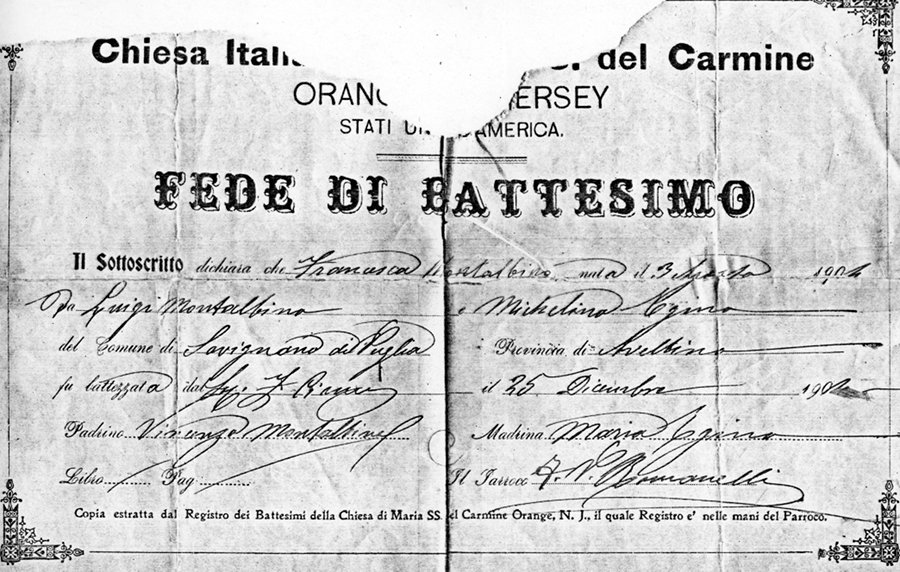 Chiesa Ital del Carmine
ORANG ERSEY
STATI UN AMERICA.
FEDE DI BATTESIMO
Il Sottoscritto dichiara che Francesca Montalbino nata il 3 Agosto 1904
Da Luigi Montalbino e Michelina Igino
del Comune di Savignano di Puglia Provincia di Avellino
fu battezzata dal il 25 Dicembre 190
Padrino Vincenzo Montalbino Madrina Maria Igino
Libro Pag Il Parroco F. V. Romanelli
Copia estratta dal Registro dei Battesimi della Chiesa di Maria SS. del Carmine Orange, N. J., il quale Registro e' nelle mani del Parroco.